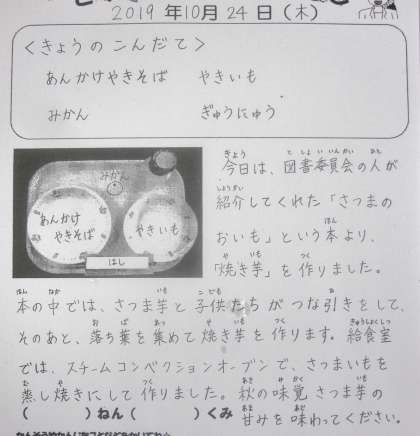 2019 年10月 24 日（木）
＜きょうのこんだて＞
あんかけやきそば　やきいも
みかん　ぎゅうにゅう
みかん
あんかけ
やきそば
やきいも
はし
今日は、図書委員会の人が
紹介してくれた「さつまの
おいも」という本より、
「焼き芋」を作りました。
本の中では、さつま芋と子供たちがつな引きをして、
そのあと、落ち葉を集めて焼き芋を作ります。給食室
では、スチームコンベクションオーブンで、さつまいもを
蒸し焼きにして作りました。秋の味覚さつま芋の
甘みを味わってください。
（　　　）ねん（　　　）くみ